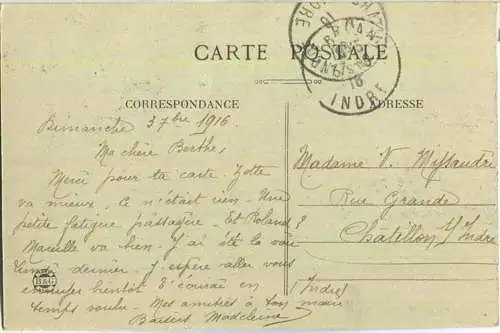 CARTE POSTALE
CORRESPONDANCE
ADRESSE
INDRE
Dimanche 3 7bre 1916
Ma chère Berthe,
Merci pour ta carte. Zette
va mieux. Ce n'était rien. Une
petite fatigue passagère. Et Roland?
Mareille va bien. J'ai été la voir
dernier. J'espère aller vous
bientôt. S'écourai en
temps voulu. Mes amitiés à ton mari
Baisers Madeleine
Madame V. Missaudre
Rue Grande
Châtillon s/ Indre
(Indre)
B&G